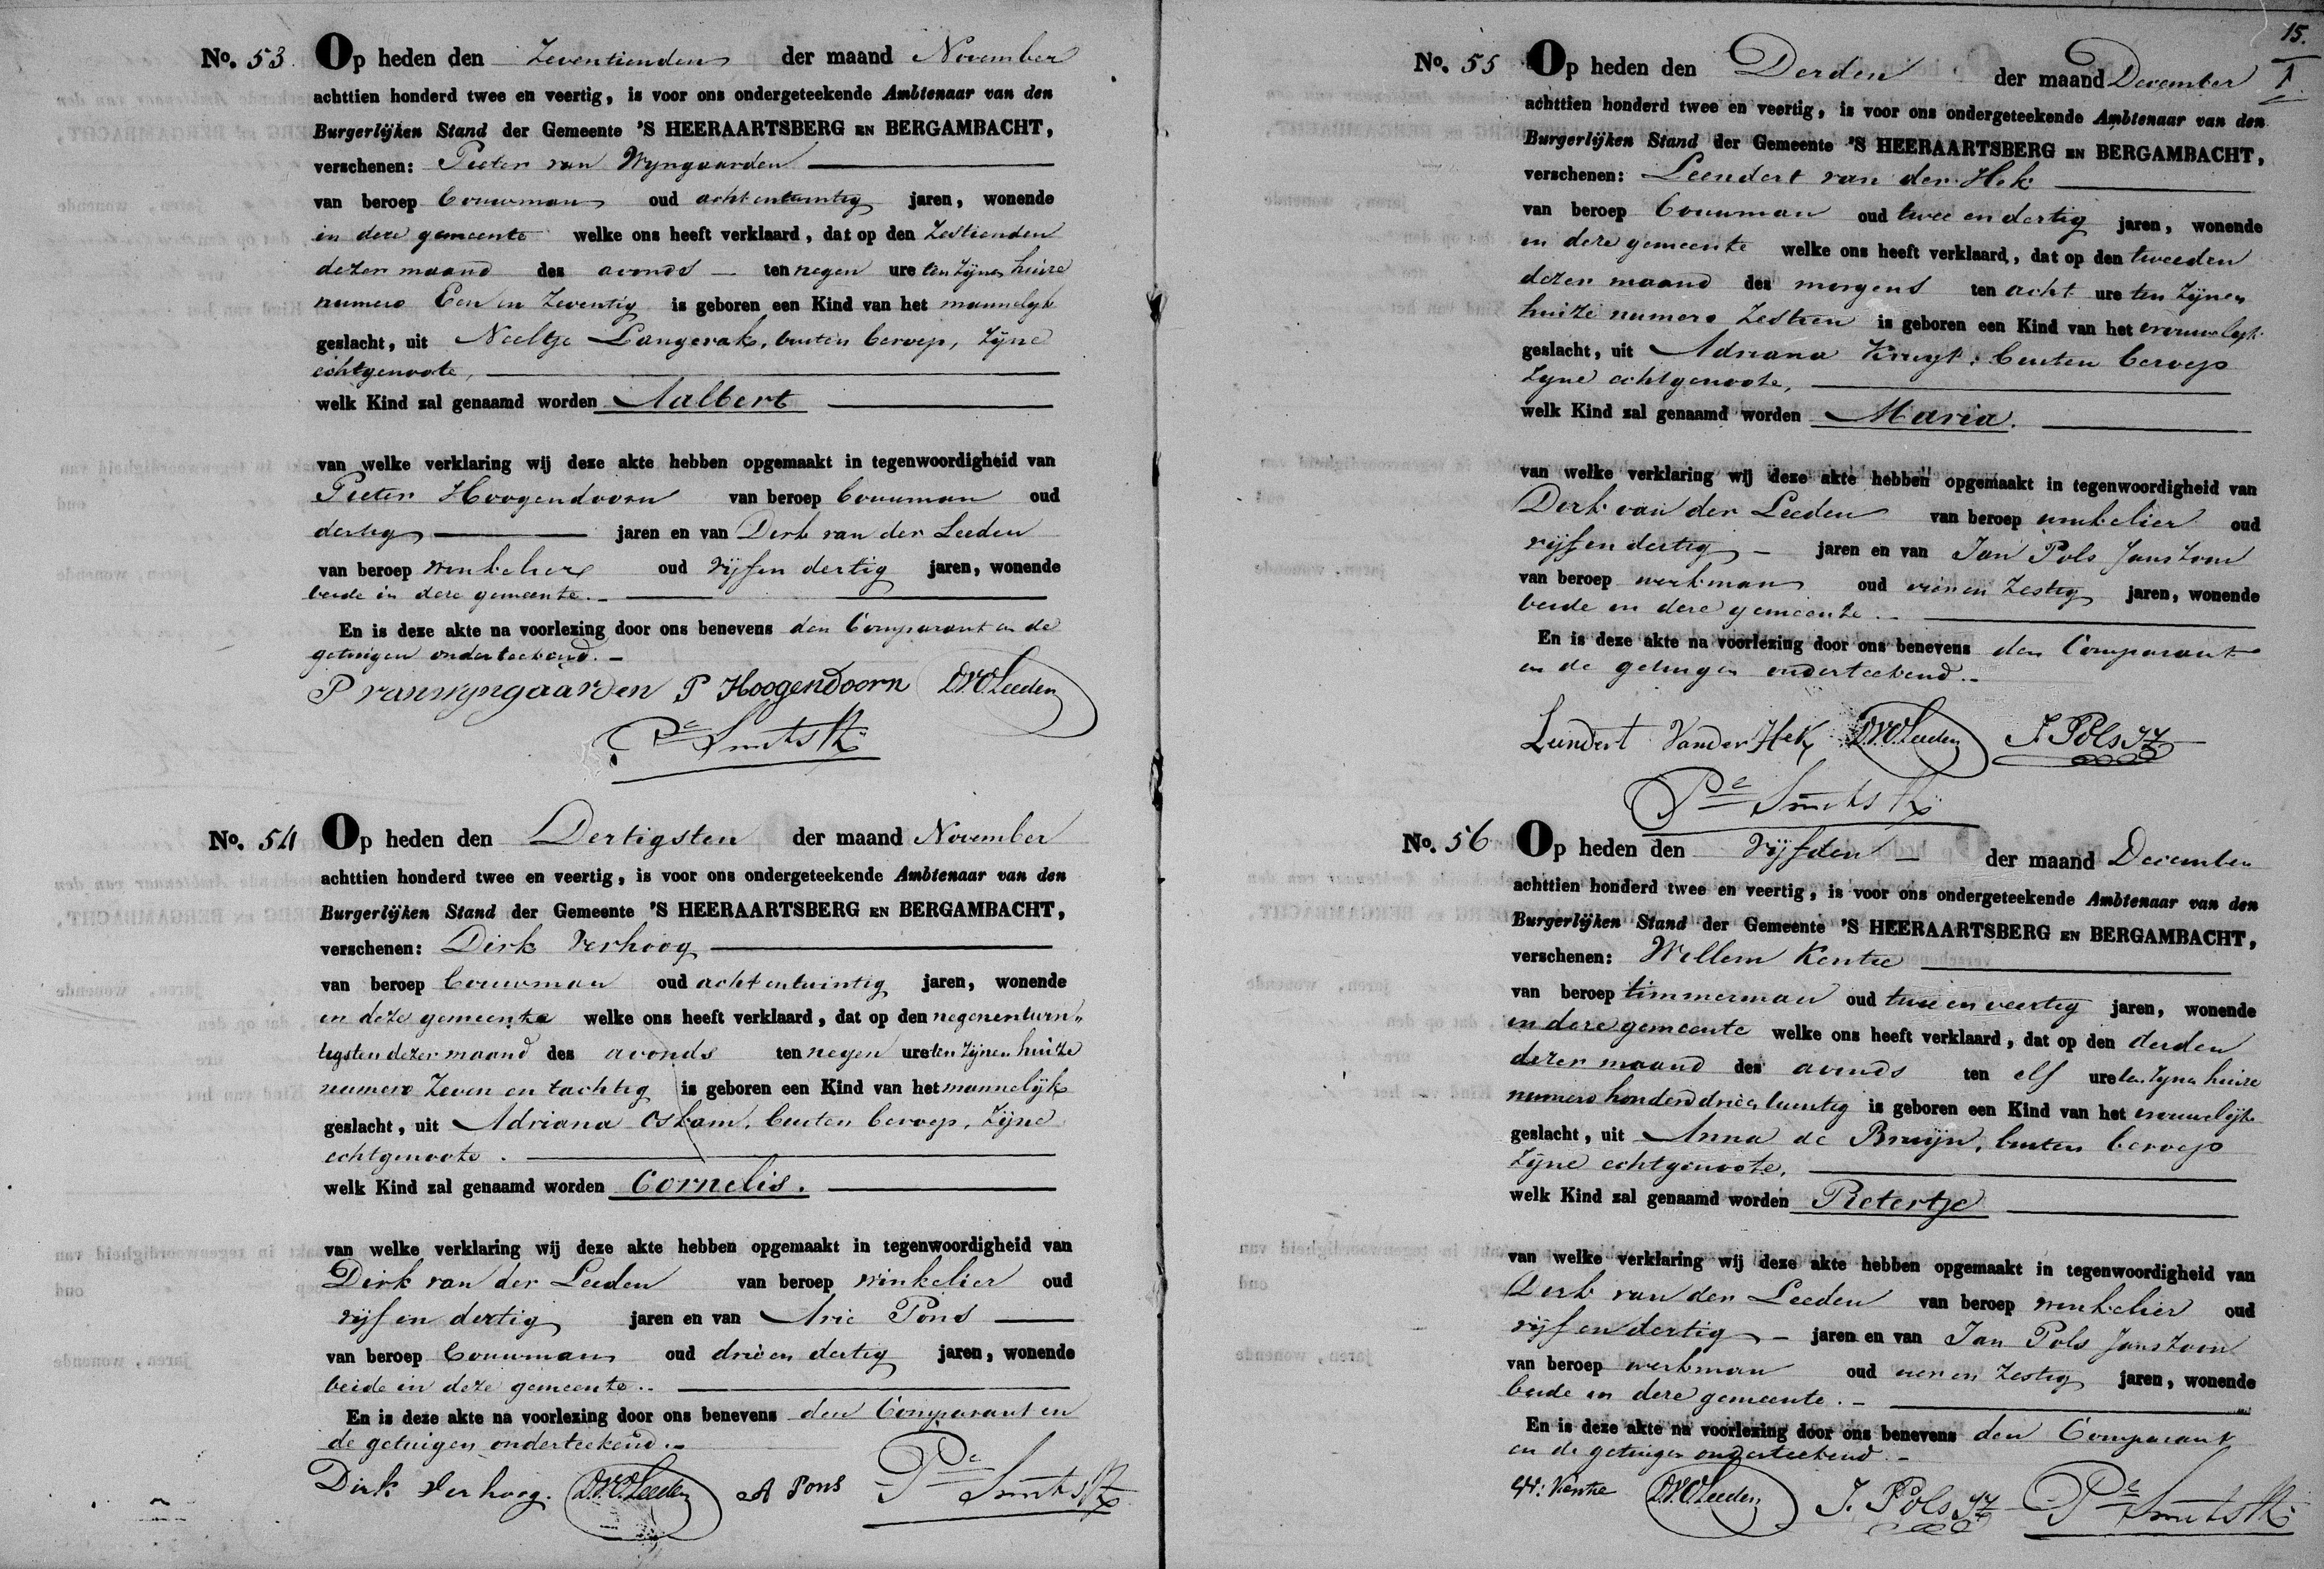 No. 53 Op heden den Zeventienden der maand November
achttien honderd twee en veertig, is voor ons ondergeteekende Ambtenaar van den
Burgerlijken Stand der Gemeente 'S HEERAARTSBERG EN BERGAMBACHT,
verschenen: Pieter van Wijngaarden
van beroep bouwman oud achtentwintig jaren, wonende
in deze gemeente welke ons heeft verklaard, dat op den Zestienden
dezer maand des avonds ten negen ure ten zijnen huize
numero Een en Zeventig is geboren een Kind van het mannelijk
geslacht, uit Neeltje Langerak, buiten beroep, Zijne
echtgenoote,
welk Kind zal genaamd worden Aalbert
van welke verklaring wij deze akte hebben opgemaakt in tegenwoordigheid van
Pieter Hoogendoorn van beroep bouwman oud
dertig jaren en van Dirk van der Leeden
van beroep winkelier oud vijf en dertig jaren, wonende
beide in deze gemeente.
En is deze akte na voorlezing door ons benevens den Comparant en de
getuigen onderteekend.
P van wijngaarden P Hoogendoorn D.V.D. Leeden
Pr Smits
No. 54 Op heden den Dertigsten der maand November
achttien honderd twee en veertig, is voor ons ondergeteekende Ambtenaar van den
Burgerlijken Stand der Gemeente 'S HEERAARTSBERG EN BERGAMBACHT,
verschenen: Dirk Verhoog
van beroep bouwman oud achtentwintig jaren, wonende
in deze gemeente welke ons heeft verklaard, dat op den negenentwin„
tigsten dezer maand des avonds ten negen ure ten zijnen huize
numero Zeven en tachtig is geboren een Kind van het mannelijk
geslacht, uit Adriana Oskam, buiten beroep, Zijne
echtgenoote.
welk Kind zal genaamd worden Cornelis.
van welke verklaring wij deze akte hebben opgemaakt in tegenwoordigheid van
Dirk van der Leeden van beroep winkelier oud
vijf en dertig jaren en van Arie Pons
van beroep bouwman oud drie en dertig jaren, wonende
beide in deze gemeente.
En is deze akte na voorlezing door ons benevens den Comparant en
de getuigen onderteekend.
Dirk Verhoog. D.V.D. Leeden A Pons Pr Smits
15.
No. 55 Op heden den Derden der maand December
achttien honderd twee en veertig, is voor ons ondergeteekende Ambtenaar van den
Burgerlijken Stand der Gemeente 'S HEERAARTSBERG EN BERGAMBACHT,
verschenen: Leendert van der Hek
van beroep bouwman oud twee en dertig jaren, wonende
in deze gemeente welke ons heeft verklaard, dat op den tweeden
dezer maand des morgens ten acht ure ten Zijnen
huize numero Zestien is geboren een Kind van het vrouwelijk
geslacht, uit Adriana Kruyt, buiten beroep
Zijne echtgenoote,
welk Kind zal genaamd worden Maria.
van welke verklaring wij deze akte hebben opgemaakt in tegenwoordigheid van
Dirk van der Leeden van beroep winkelier oud
vijf en dertig jaren en van Jan Pols Janszoon
van beroep werkman oud vier en Zestig jaren, wonende
beide in deze gemeente.
En is deze akte na voorlezing door ons benevens den Comparant
en de getuigen onderteekend.
Leendert Van der Hek D.V.D. Leeden J. Pols JZ
Pr Smits
No. 56 Op heden den Vijfden der maand December
achttien honderd twee en veertig, is voor ons ondergeteekende Ambtenaar van den
Burgerlijken Stand der Gemeente 'S HEERAARTSBERG EN BERGAMBACHT,
verschenen: Willem Kentie
van beroep timmerman oud twee en veertig jaren, wonende
in deze gemeente welke ons heeft verklaard, dat op den derden
dezer maand des avonds ten elf ure ten zijnen huize
numero honderd drie en twintig is geboren een Kind van het vrouwelijk
geslacht, uit Anna de Bruijn, buiten beroep
Zijne echtgenoote,
welk Kind zal genaamd worden Pietertje
van welke verklaring wij deze akte hebben opgemaakt in tegenwoordigheid van
Dirk van der Leeden van beroep winkelier oud
vijf en dertig jaren en van Jan Pols Janszoon
van beroep werkman oud vier en Zestig jaren, wonende
beide in deze gemeente.
En is deze akte na voorlezing door ons benevens den Comparant
en de getuigen onderteekend.
W: Kentie D.V.D. Leeden J. Pols JZ Pr Smits